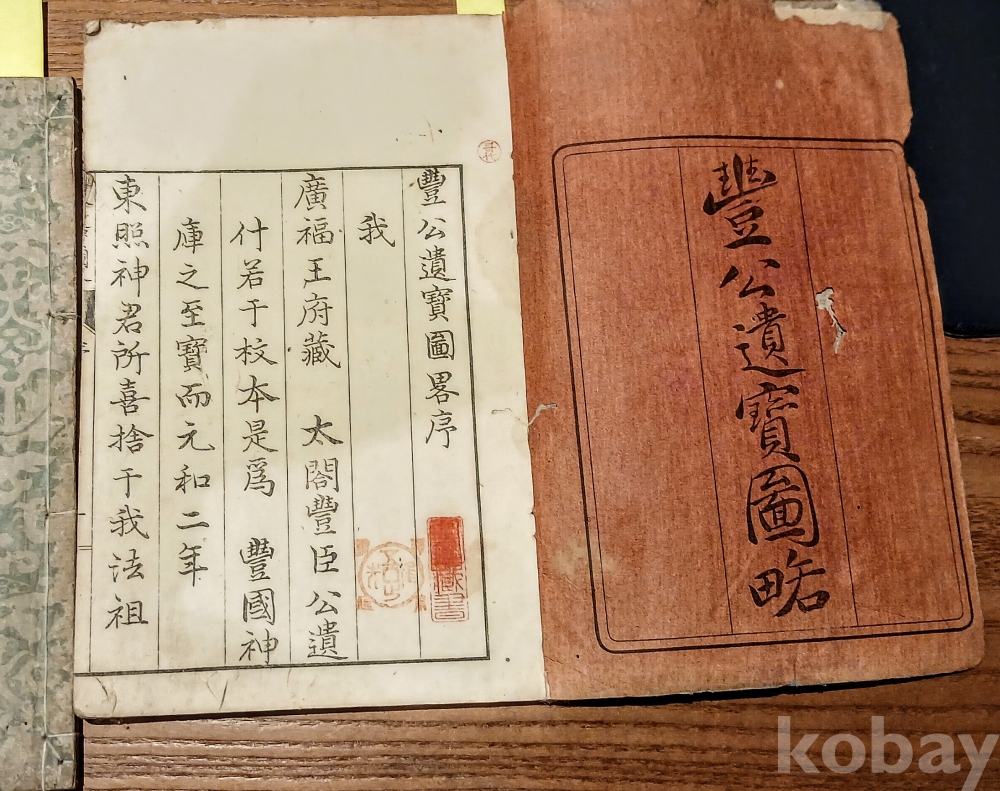 豐公遺寶圖略
豐公遺寶圗畧序
我
廣福王府藏 太閤豐臣公遺
什若干校本是爲 豐國神
庫之至寶而元和二年
東照神君所喜捨于我法祖
藏書
kobay